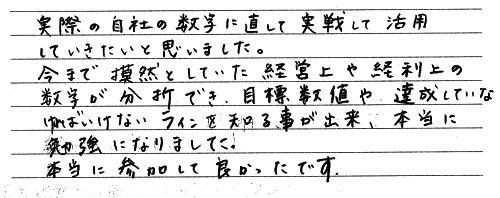 実際の自社の数字に直して実戦して活用
していきたいと思いました。
今まで摸然としていた経営上や経利上の
数字が分折でき、目標数値や、達成していな
ければいけないラインを知る事が出来、本当に
勉強になりました。
本当に参加して良かったです。